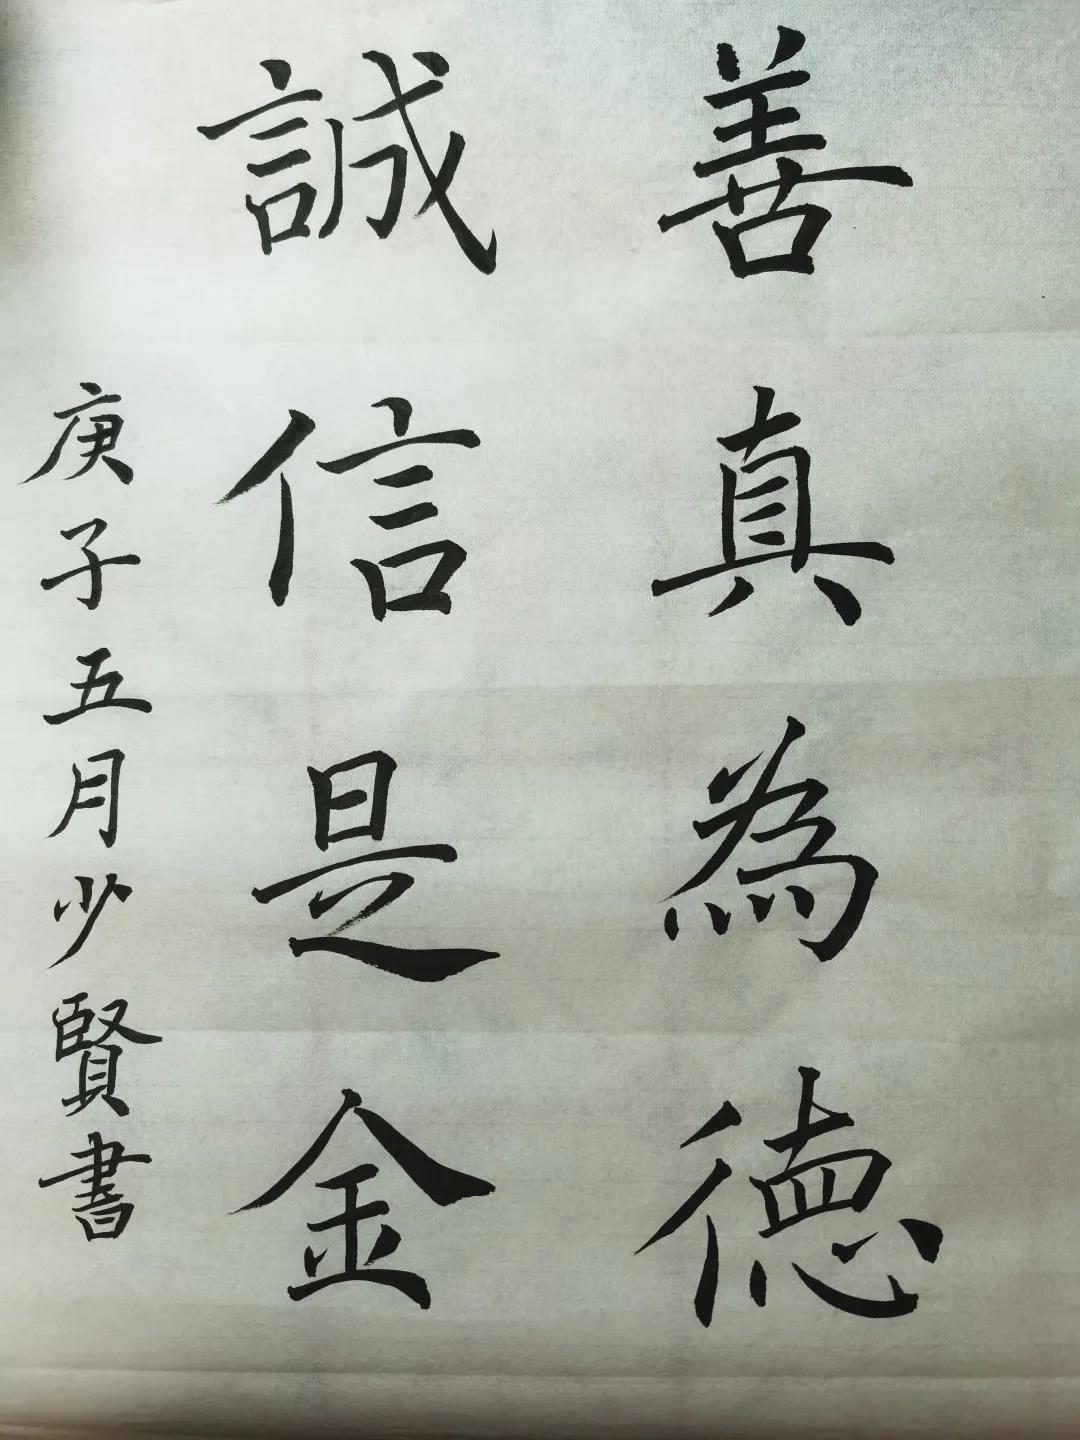 善真為德
誠信是金
庚子五月少賢書